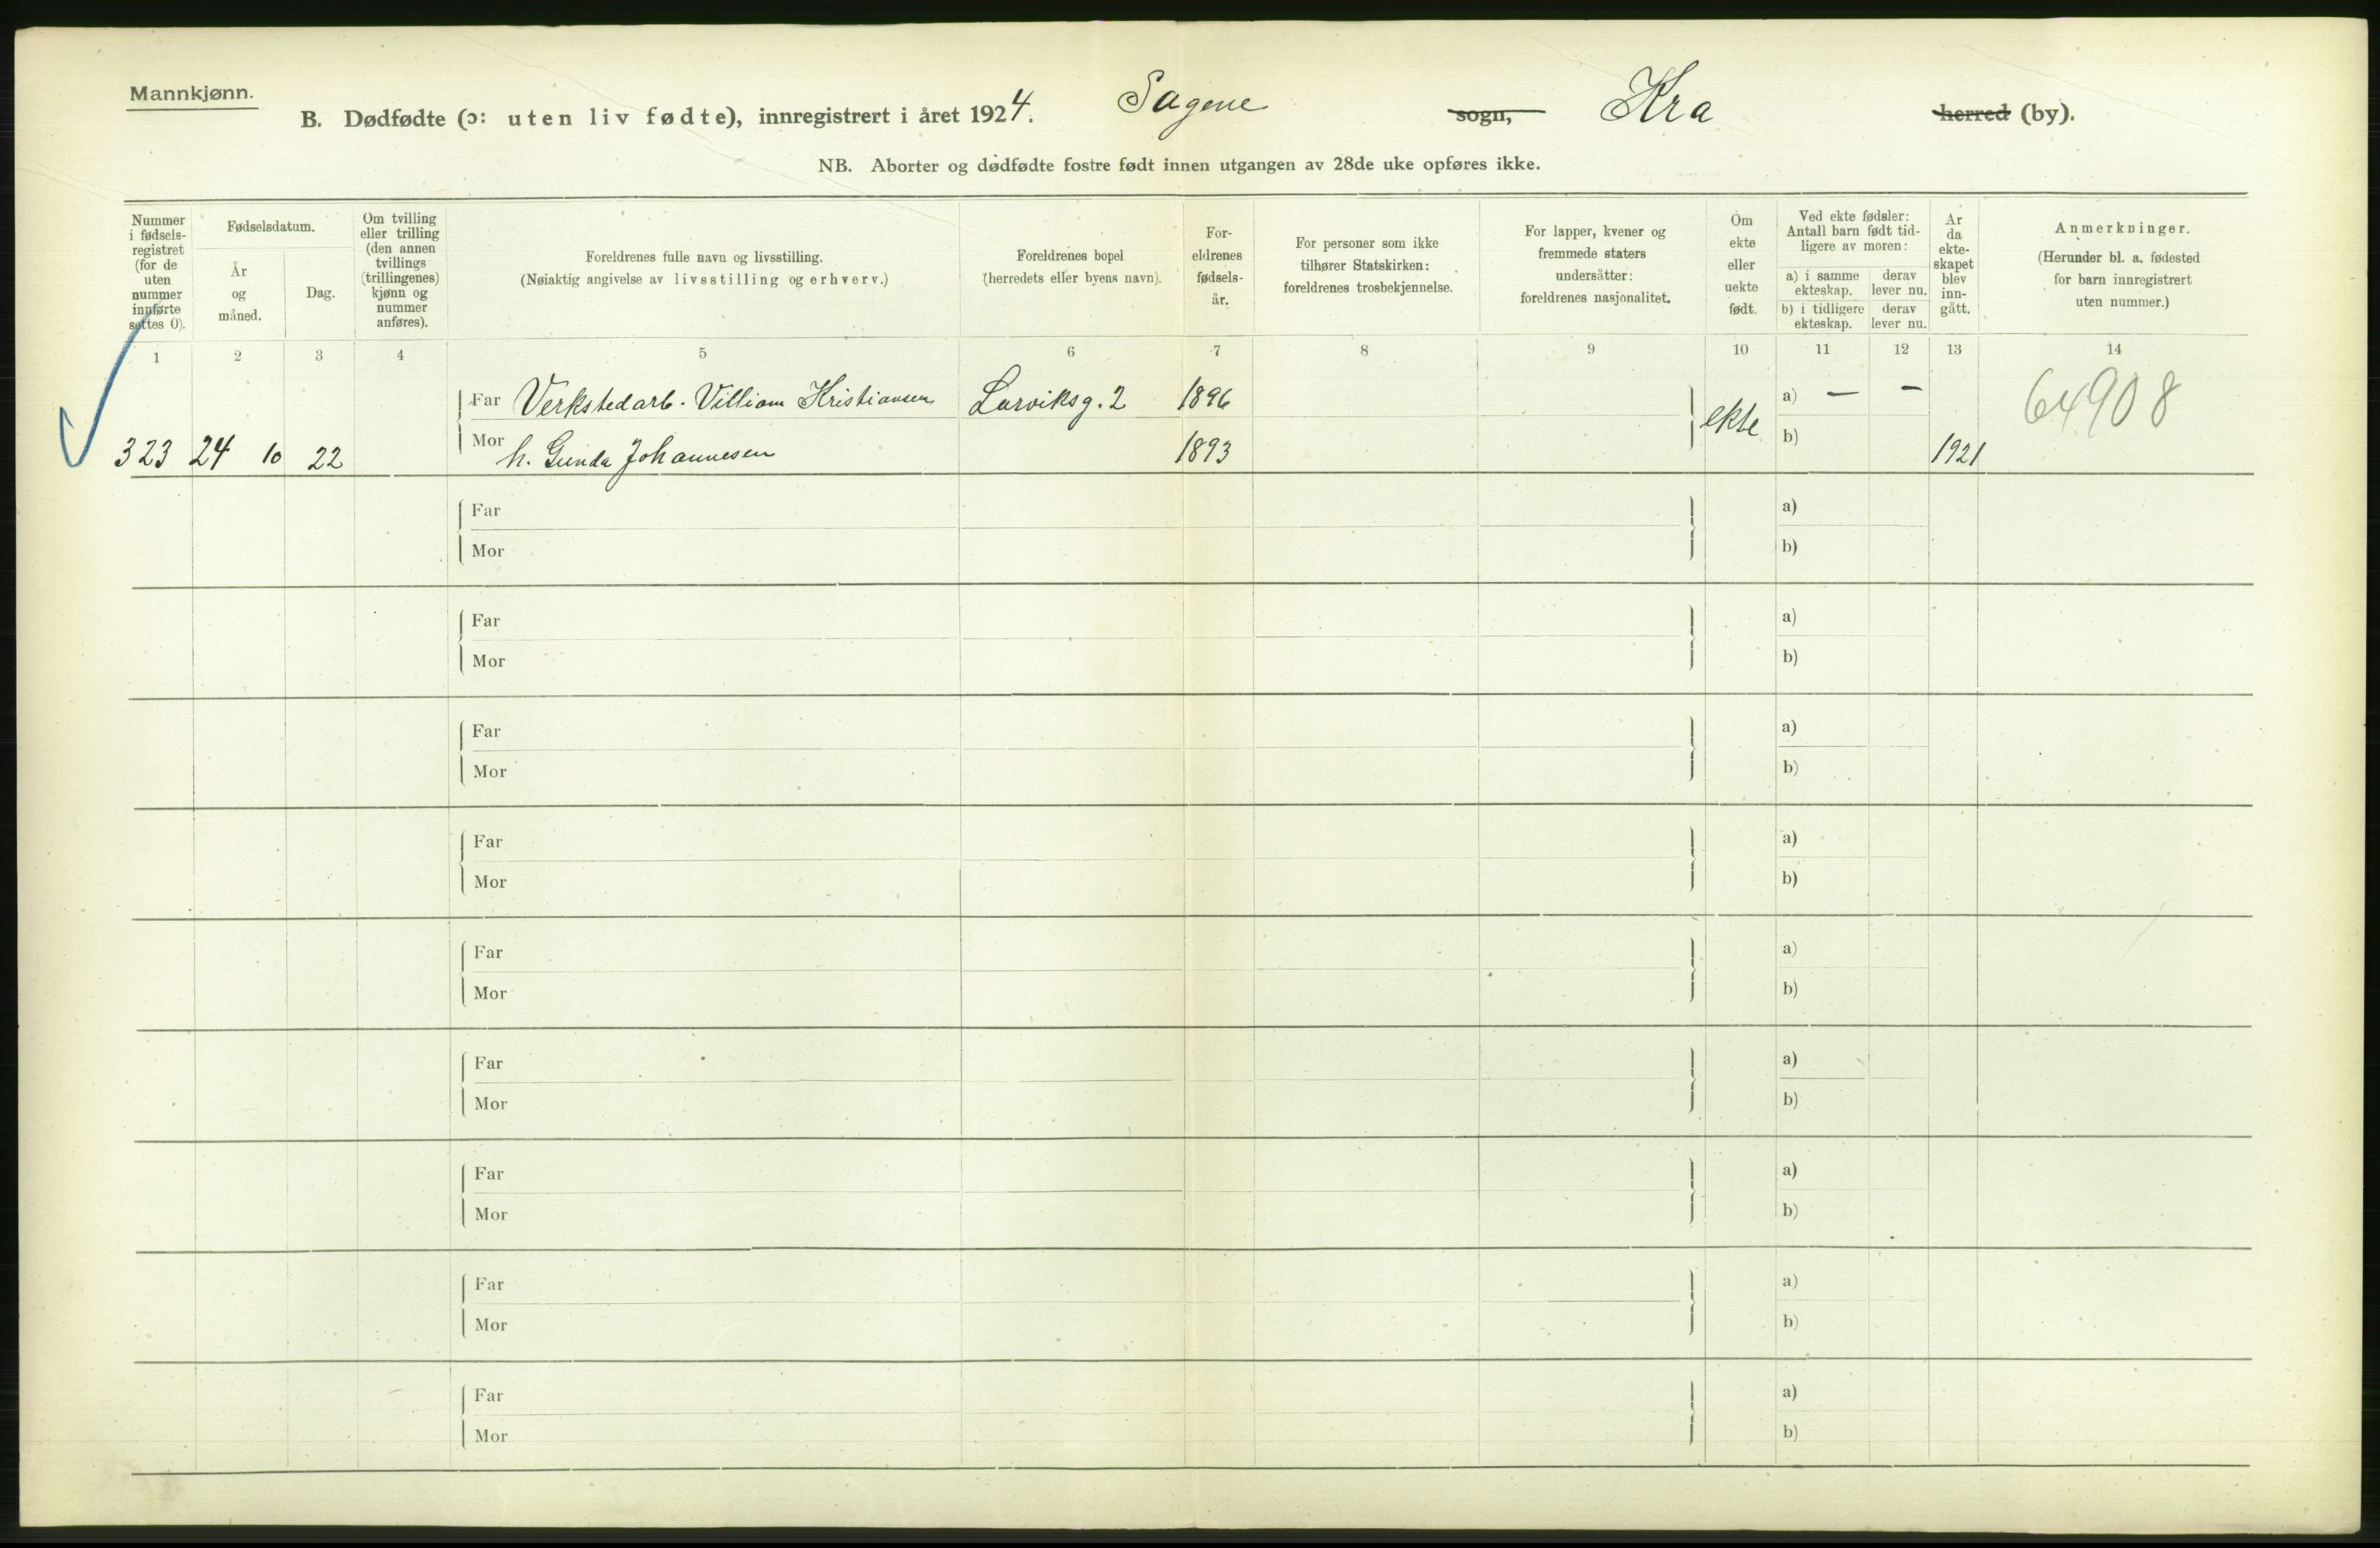 Mannkjønn.
B. Dødfødte (ɔ: uten liv fødte), innregistrert i året 1924. Sagene sogn, Kra herred (by).
NB. Aborter og dødfødte fostre født innen utgangen av 28de uke opføres ikke.
Nummer i fødsels-registret (for de uten nummer innførte settes 0).
Fødselsdatum.
År og måned.
Dag.
Om tvilling eller trilling (den annen tvillings (trillingenes) kjønn og nummer anføres).
Foreldrenes fulle navn og livsstilling.
(Nøiaktig angivelse av livsstilling og erhverv.)
Foreldrenes bopel
(herredets eller byens navn).
For-eldrenes fødsels-år.
For personer som ikke tilhører Statskirken: foreldrenes trosbekjennelse.
For lapper, kvener og fremmede staters undersåtter: foreldrenes nasjonalitet.
Om ekte eller uekte født.
Ved ekte fødsler: Antall barn født tid-ligere av moren:
a) i samme ekteskap.
derav lever nu.
b) i tidligere ekteskap.
derav lever nu.
År da ekte-skapet blev inn-gått.
Anmerkninger.
(Herunder bl. a. fødested for barn innregistrert uten nummer.)
1 2 3 4 5 6 7 8 9 10 11 12 13 14
Far Verkstedarb. Villiam Kristiansen Larviksg. 2 1896 ekte a) — — 64908
323 24 10 22 Mor h. Gunda Johannesen 1893 b) 1921
Far a)
Mor b)
Far a)
Mor b)
Far a)
Mor b)
Far a)
Mor b)
Far a)
Mor b)
Far a)
Mor b)
Far a)
Mor b)
Far a)
Mor b)
Far a)
Mor b)